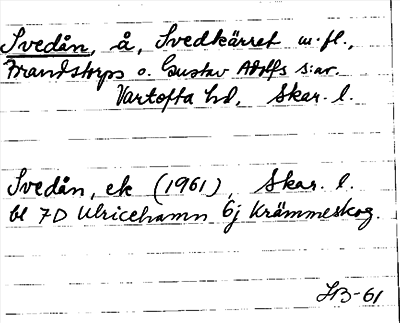 Svedån, å, Svedkärret m.fl.,
Brandstorps o. Gustav Adolfs s:ar.
Vartofta hd, Skar. l.
Svedån, ek (1961), Skar. l.
bl 7D Ulricehamn 6j Krämmeskog.
HB-61